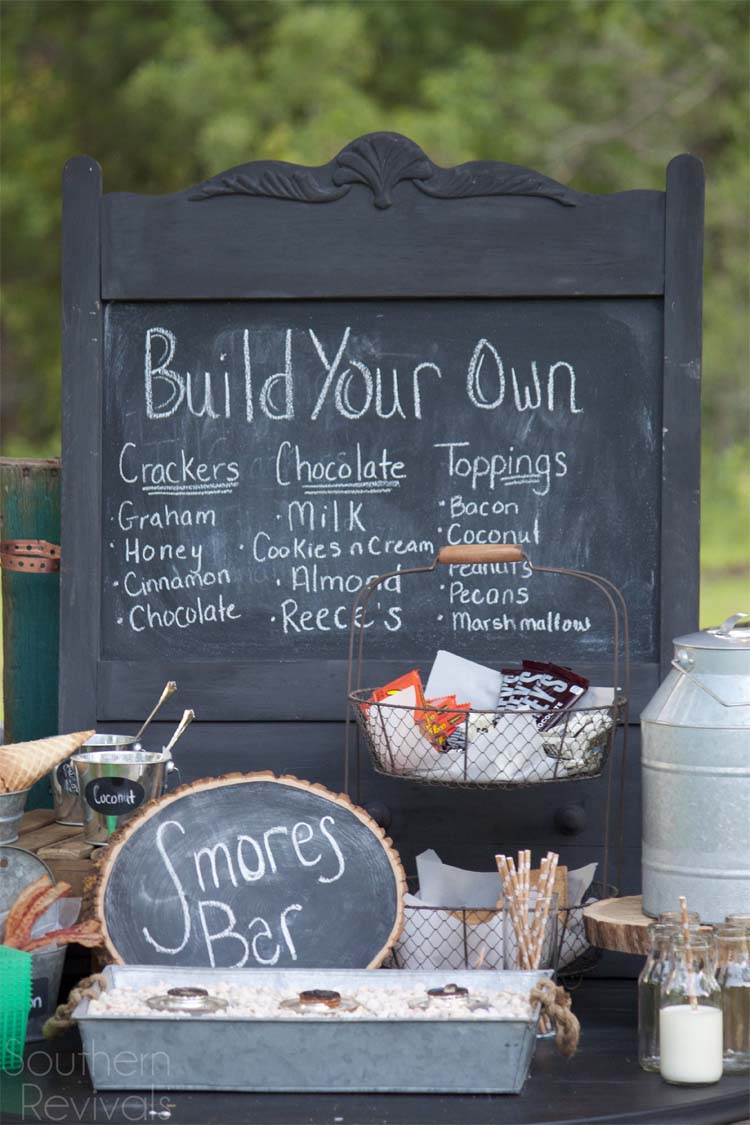 Build Your Own
Crackers
· Graham
· Honey
· Cinnamon
· Chocolate
Chocolate
· Milk
· Cookies n Cream
· Almond
· Reece's
Toppings
· Bacon
· Coconut
Peanuts
· Pecans
· Marshmallow
Coconut
S'mores
Bar
Southern
Revivals